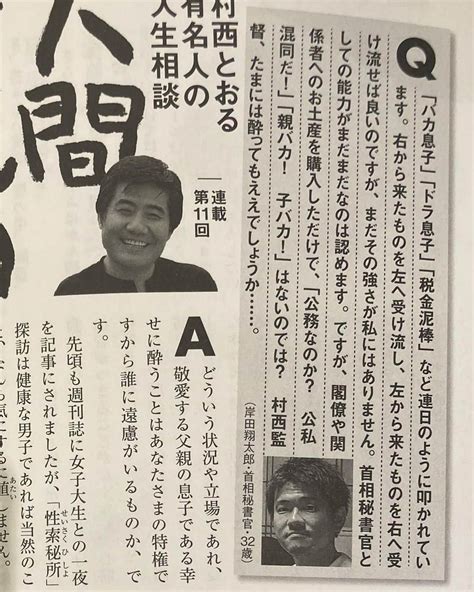 Q
「バカ息子」「ドラ息子」「税金泥棒」など連日のように叩かれてい
ます。右から来たものを左へ受け流し、左から来たものを右へ受
け流せば良いのですが、まだその強さが私にはありません。首相秘書官と
しての能力がまだまだなのは認めます。ですが、閣僚や関
係者へのお土産を購入しただけで、「公務なのか? 公私
混同だ!」「親バカ! 子バカ!」はないのでは? 村西監
督、たまには酔ってもええでしょうか……。
(岸田翔太郎・首相秘書官・32歳)
村西とおる
有名人の
人生相談
連載
第11回
人間
A
どういう状況や立場であれ、
敬愛する父親の息子である幸
せに酔うことはあなたさまの特権で
すから誰に遠慮がいるものか、で
す。
先頃も週刊誌に女子大生との一夜
を記事にされましたが、「性索秘所」
せいさくひしょ
探訪は健康な男子であれば当然のこ